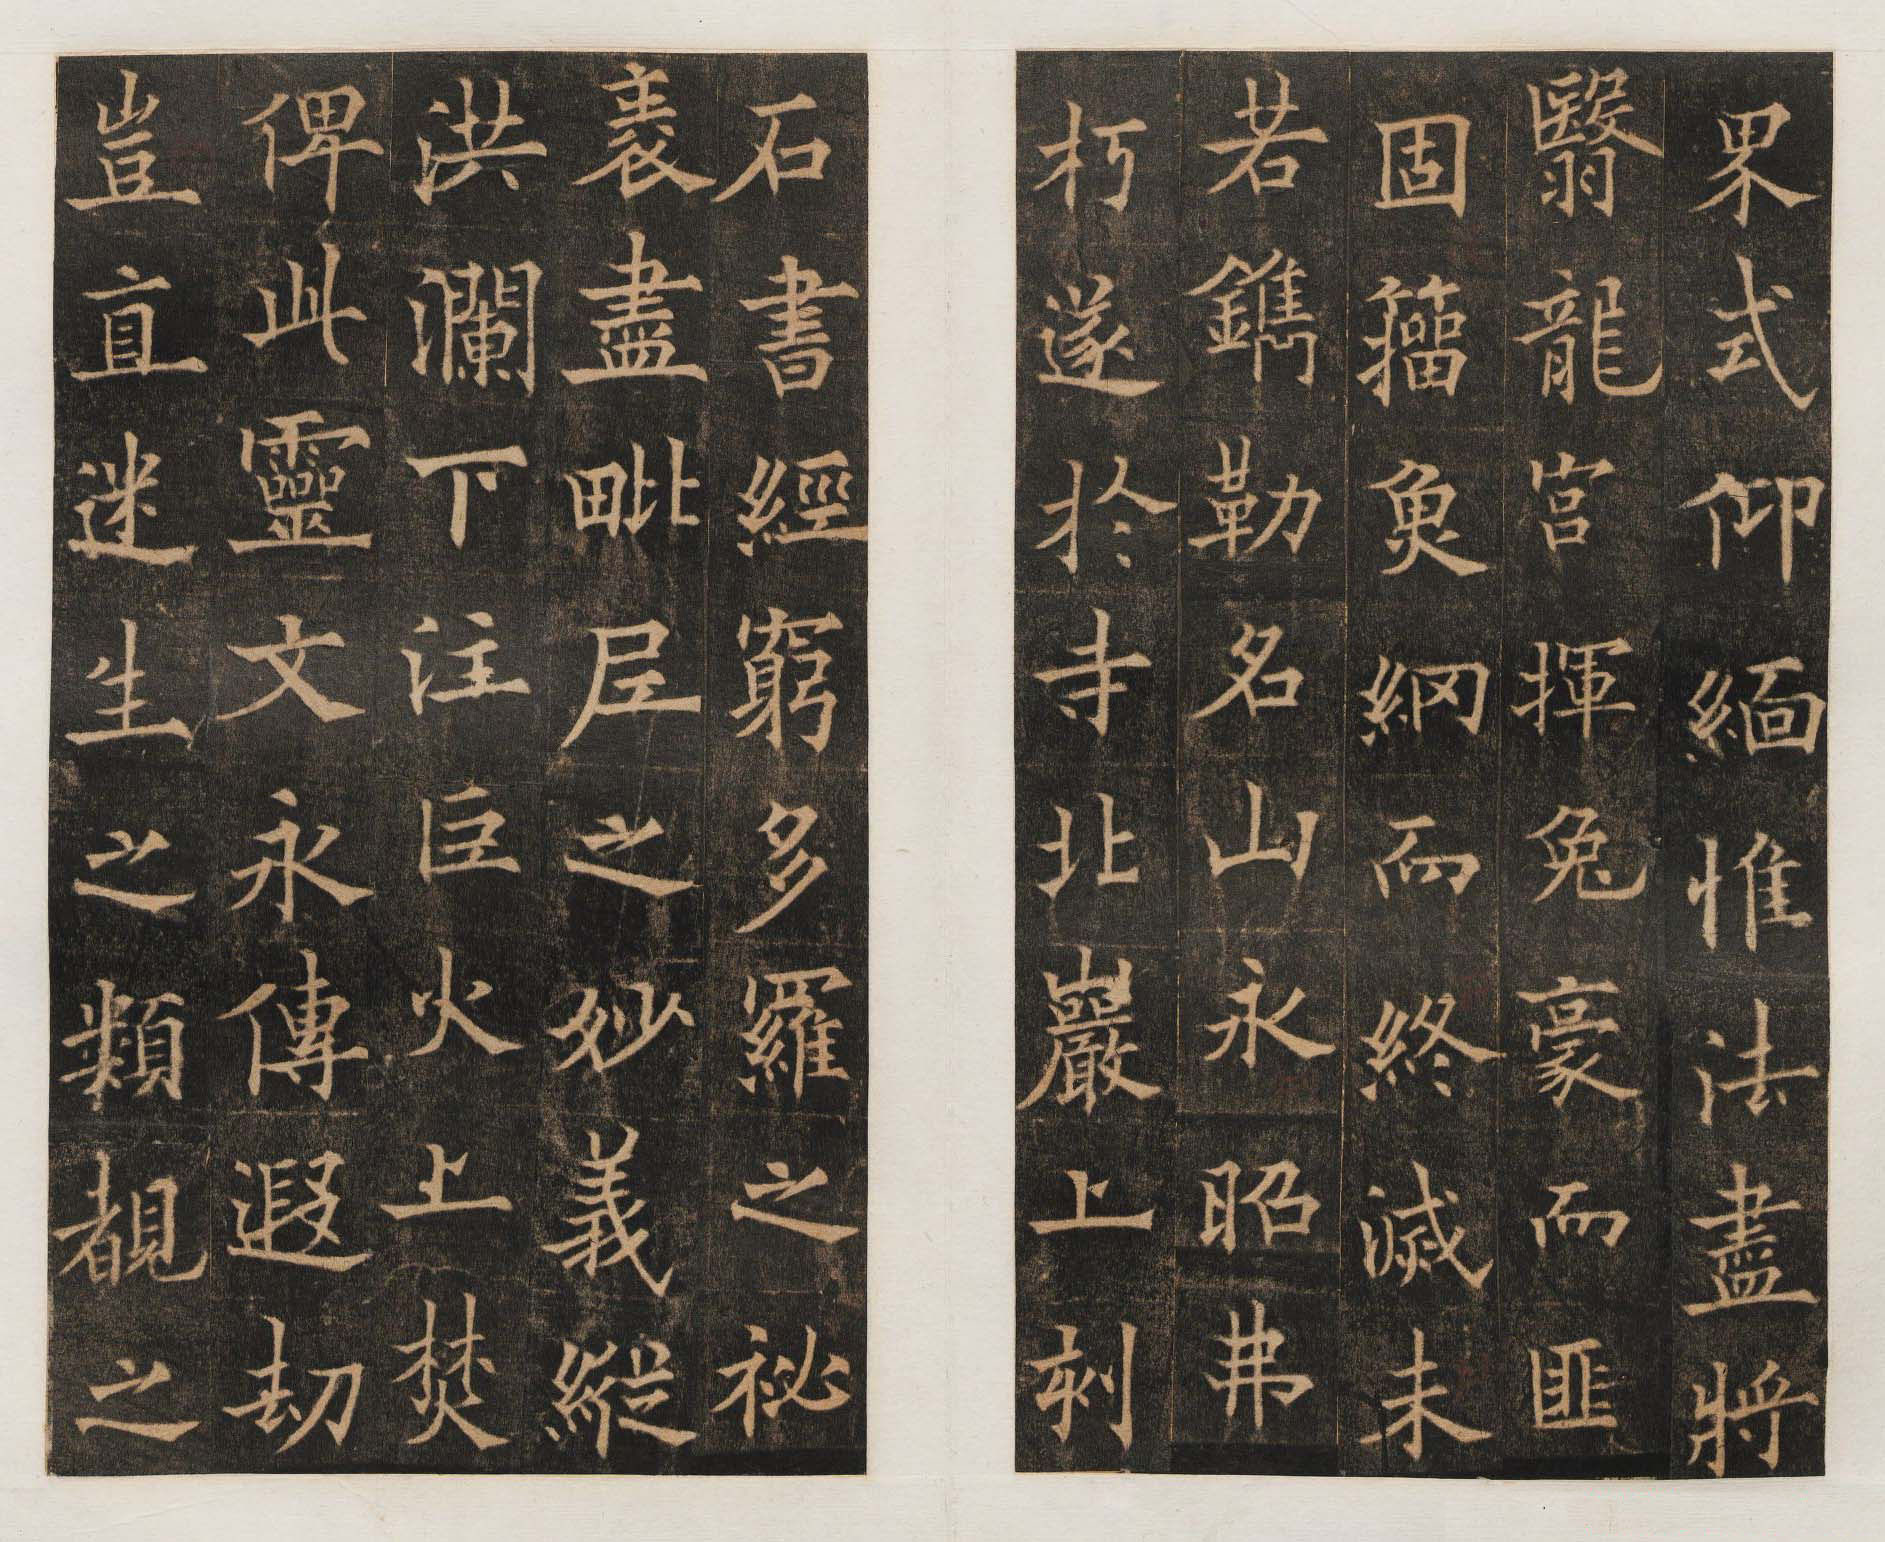 界式仰緬惟法盡將
翳龍宮揮兔豪而匪
固籀魚網而終滅未
若鐫勒名山永昭弗
朽遂於寺北巖上刻
石書經窮多羅之祕
袠盡毗尼之妙義縱
洪瀾下注巨火上焚
俾此靈文永傳遐劫
豈直迷生之類覩之